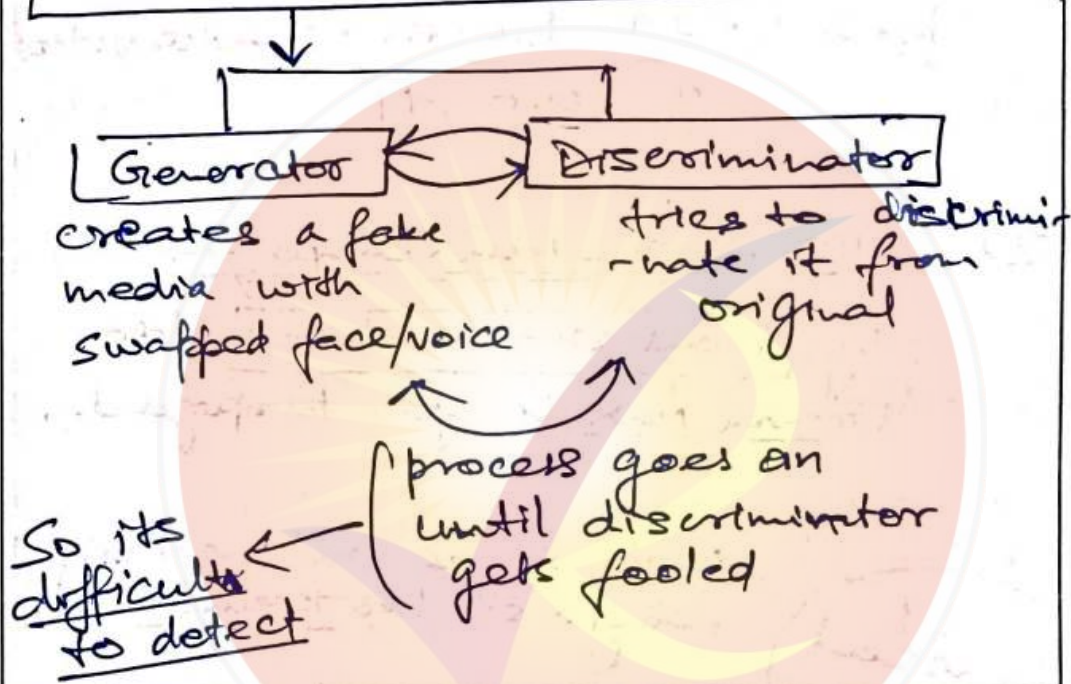 Generator
Discriminator
creates a fake
media with
swapped face/voice
tries to discrimi-
-nate it from
original
process goes on
until discriminator
gets fooled
So its
difficult
to detect